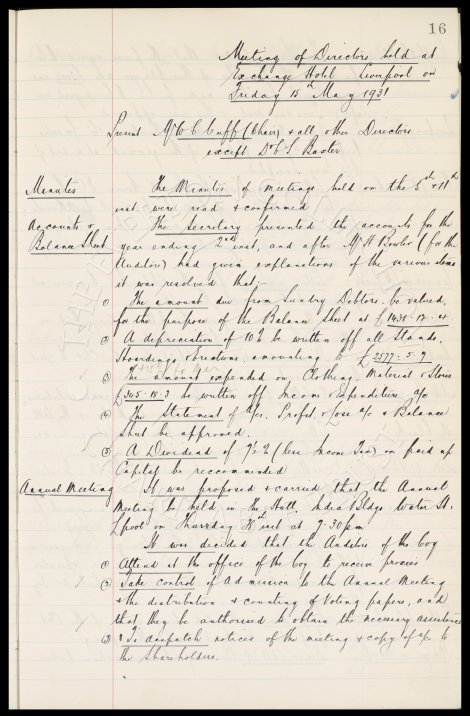 16
Meeting of Directors held at
Exchange Hotel Liverpool on
Friday 15th May 1931
Present Mr W C Cuff (Chair) & all other Directors
except Dr C S Baxter
Minutes
The Minutes of meetings held on the 5th & 11th
inst were read & confirmed
Accounts &
Balance Sheet
The Secretary presented the accounts for the
year ending 2nd inst, and after Mr H (for the
Auditors) had given explanations of the various items
it was resolved that
(1) The amount due from Sundry Debtors be valued,
for the purpose of the Balance Sheet at
(2) A depreciation of 10% be written off all Stands,
Hoardings & Erections, amounting to £2577 . 5 . 9
(3) The amount expended on Clothing, Material & Stores
£345 . 18 . 3 be written off Income & Expenditure a/c
(4) The Statement of a/cs, Profit & Loss a/c & Balance
Sheet be approved.
(5) A Dividend of 7½% (less Income Tax) on paid up
Capital be recommended
Annual Meeting
It was proposed & carried that the Annual
Meeting be held in the Hall, India Bldgs Water St.
L'pool on Thursday inst at 7-30 pm
It was decided that the Auditors of the Coy
(1) Attend at the office of the Coy to receive proxies
(2) Take control of admission to the Annual Meeting
& the distribution & counting of Voting papers, and
that they be authorised to obtain the necessary assistance
(3) To despatch notices of the meeting & copy of a/cs to
the Shareholders.